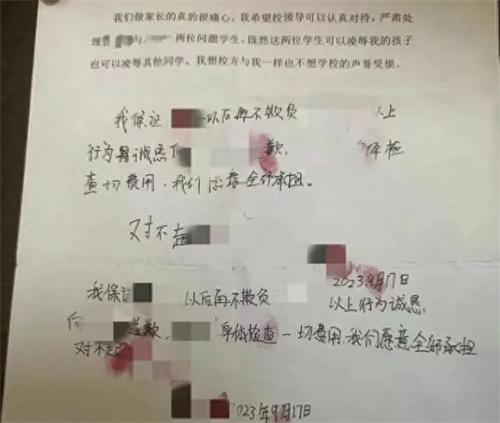 我们做家长的真的很痛心，我希望校领导可以认真对待，严肃处
理 与 两位问题学生，既然这两位学生可以凌辱我的孩子
也可以凌辱其他同学。我想校方与我一样也不想学校的声誉受损。
我保证 以后再不欺负 以上
行为 诚恳 歉， 体检
查一切费用，我们愿意全部承担。
对不起
2023.9月17日
我保证 以后再不欺负 以上行为诚恳
向 道歉， 身体检查一切费用，我们愿意全部承担
对不起
2023年9月17日